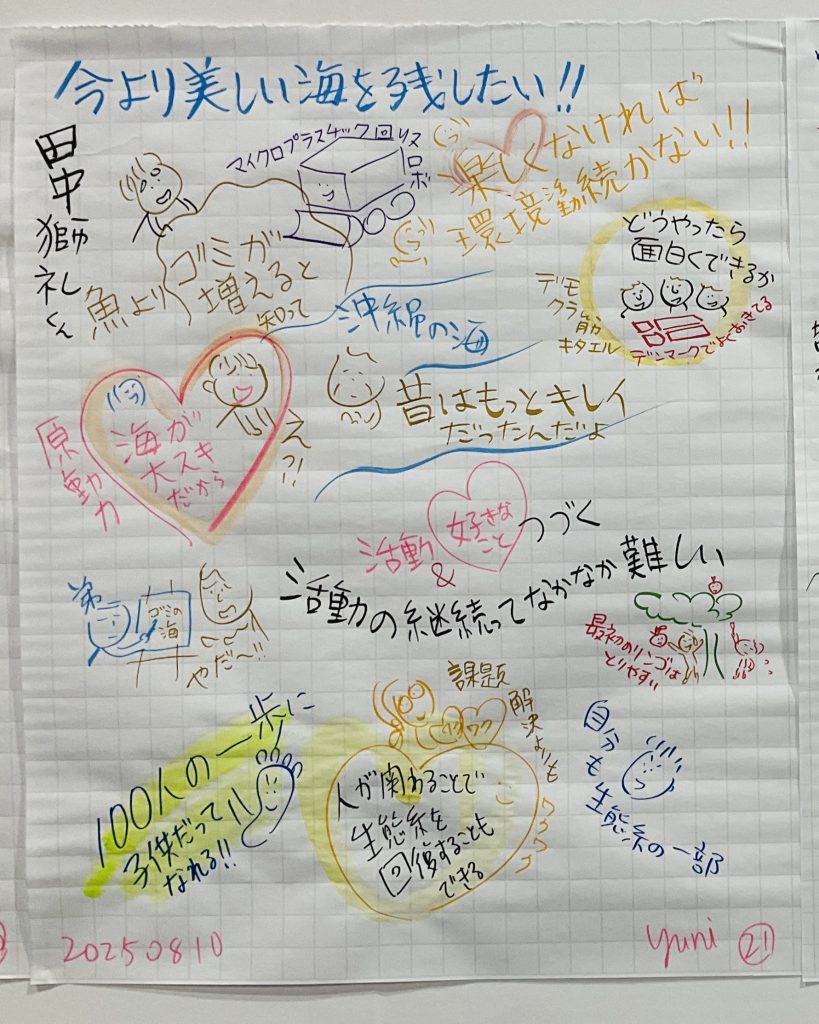 今より美しい海を残したい!!
田中
礼くん
マイクロプラスチック回収
ロボ
楽しくなければ
環境活動続かない!!
魚よりゴミが
増えると
知って
どうやったら
面白くできるか
デモ
クラ
筋
キタエル
デンマークでよくおきてる
沖縄の海
昔はもっとキレイ
だったんだよ
え〜!!
原動力
海が
大スキ
だから
活動
&
好きな
こと
つづく
活動の継続ってなかなか難しい
弟
ゴミの
海
やだ〜!!
最初のリンゴは
とりやすい
100人の一歩に
子供だって
なれる!!
課題
解決よりも
ワクワク
人が関わることで
生態系を
回復することも
できる
自分も
生態系の一部
20250810
yuni
21